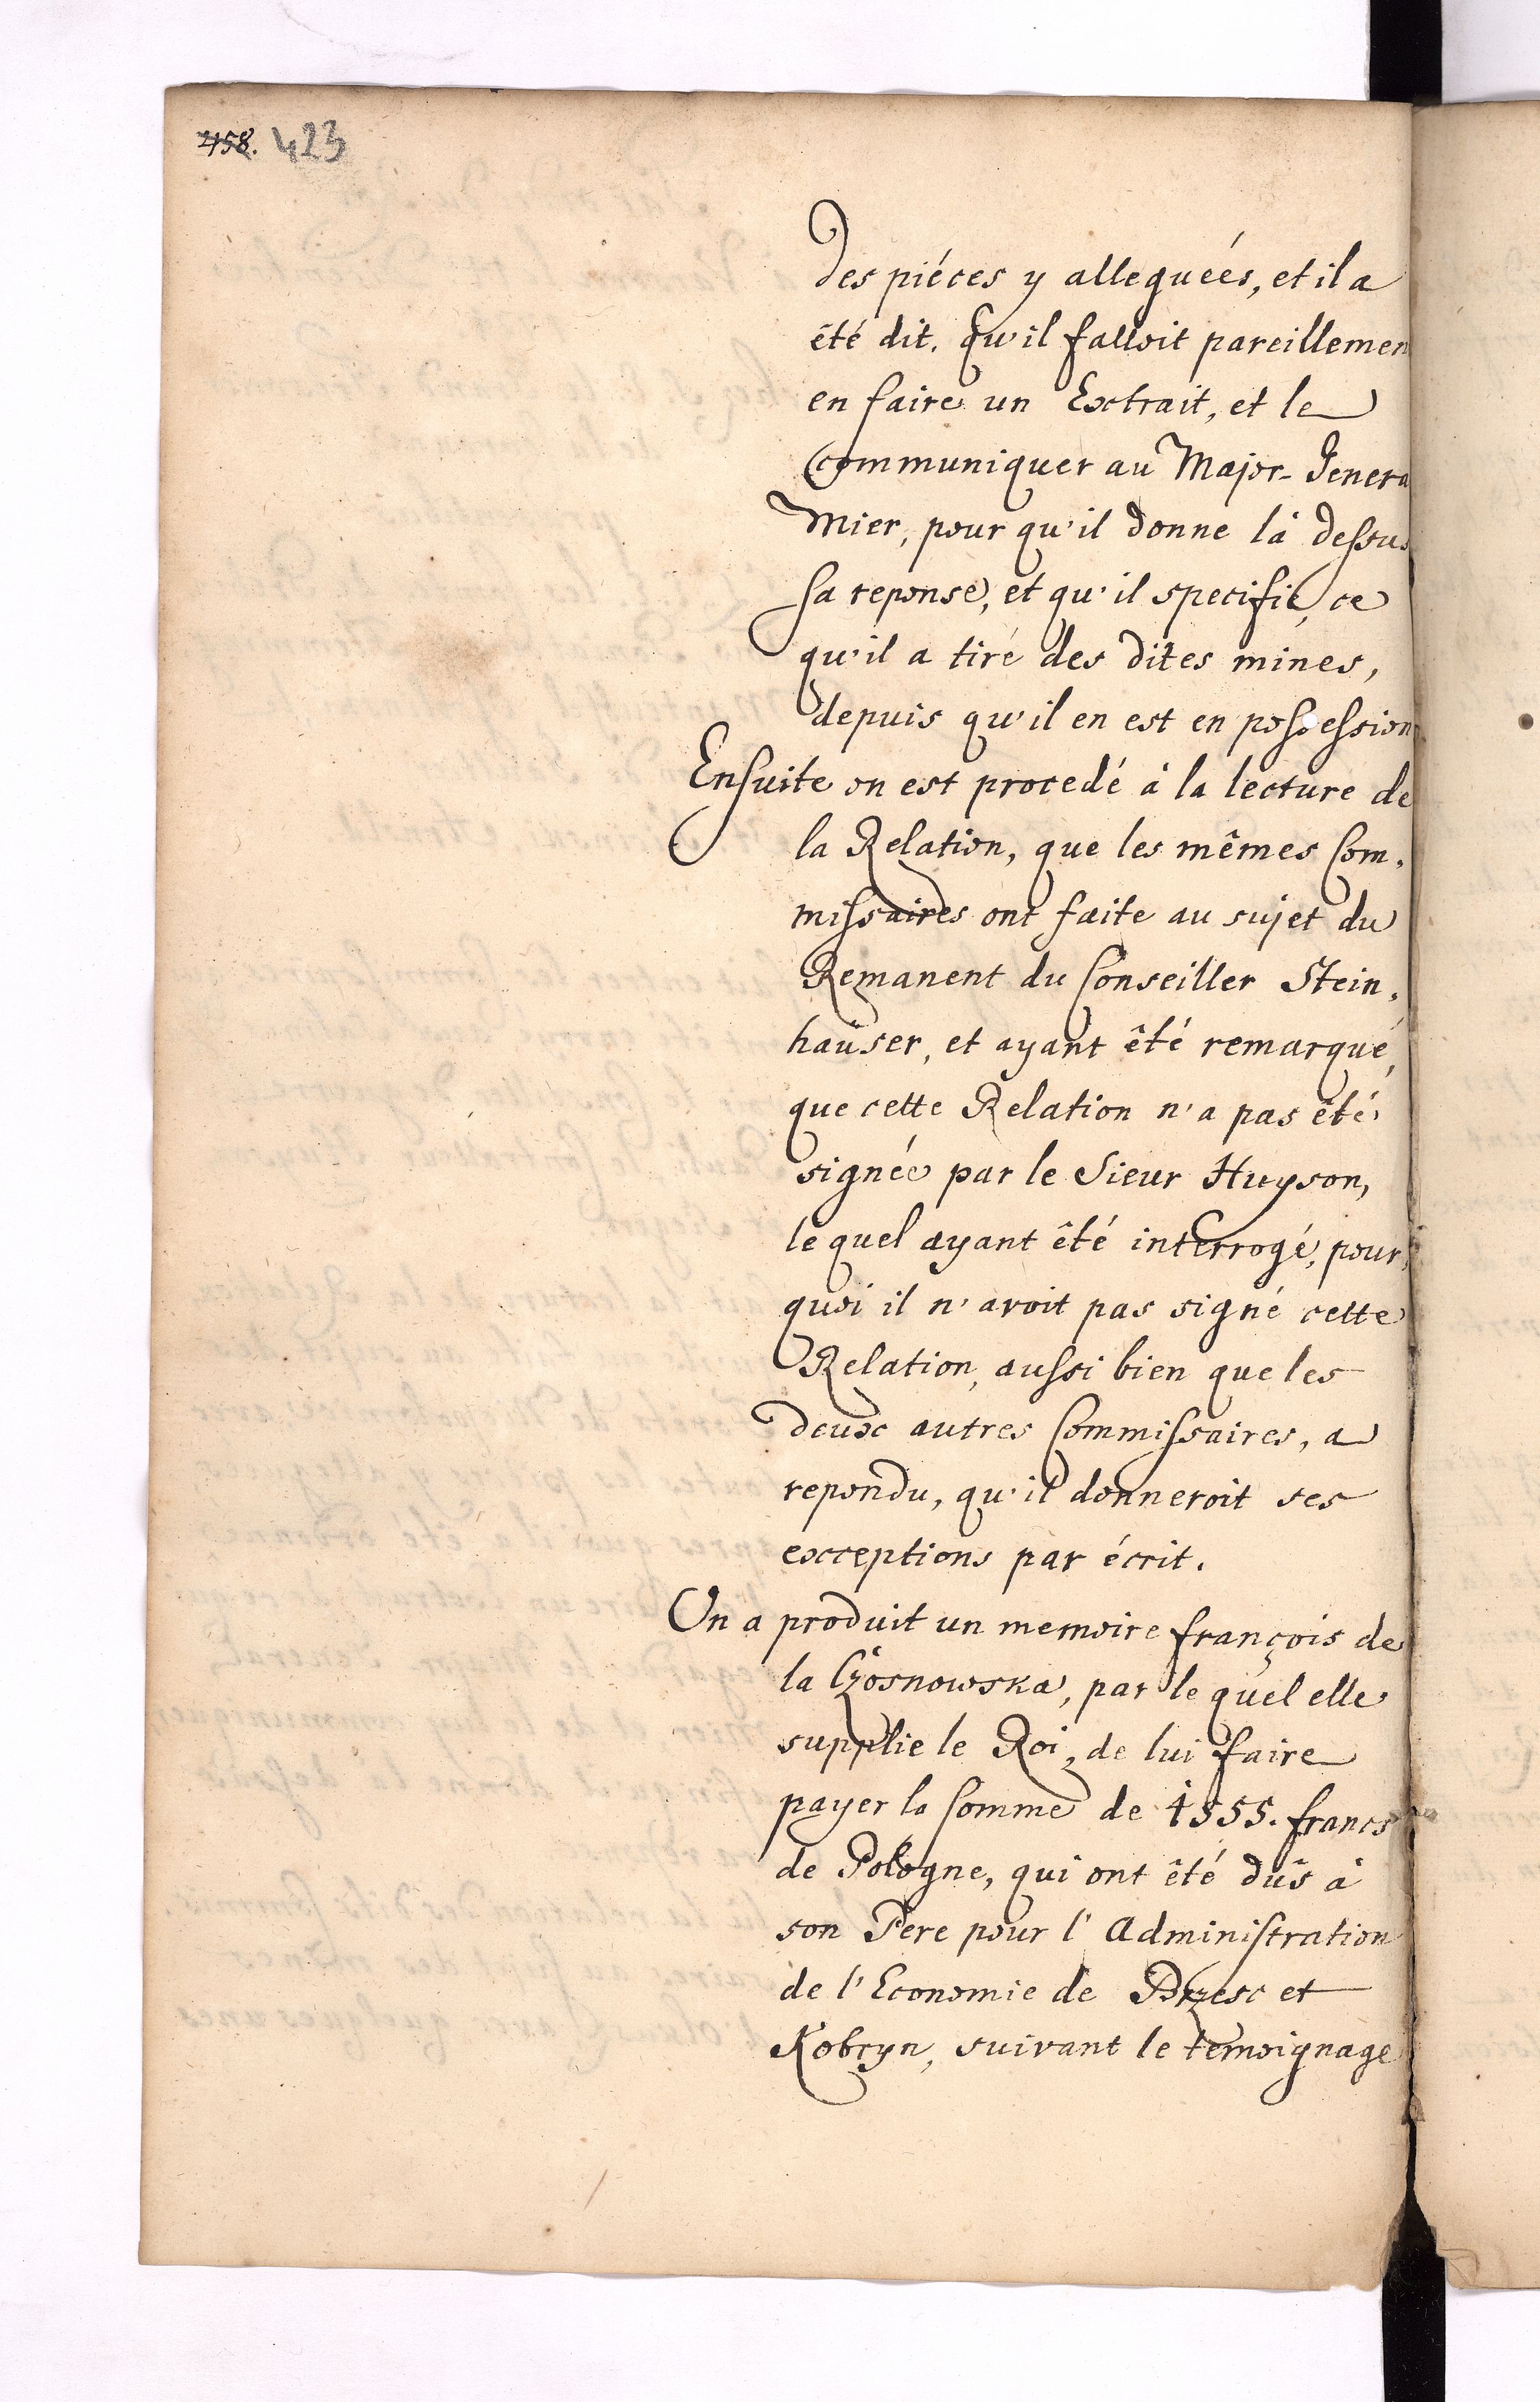 458. 423
des piéces y alleguéés, et il a
été dit. qu'il falloit pareillemen
en faire un Extrait, et le
communiquer au Major-Genera
Mier, pour qu'il donne là dessus
Sa reponse, et qu'il specifie, ce
qu'il a tiré des dites mines,
depuis qu'il en est en possession
Ensuite on est procedé à la lecture de
la Relation, que les mêmes Com,
missaires ont faite au sujet du
Remanent du Conseiller Stein,
haüser, et ayant êté remarqué,
que cette Relation n'a pas êté
signée par le Sieur Huyson,
le quel ayant êté interrogé, pour,
quoi il n'avoit pas signé cette
Relation, aussi bien que les
deux autres Commissaires, a
repondu, qu'il donneroit ses
exceptions par écrit.
On a produit un memoire françois de
la Czosnowska, par le quel elle
supplie le Roi, de lui faire
payer la somme de 1555. francs
de Pologne, qui ont êté dûs à
son Pere pour l'Administration
de l'Economie de Brzesc et
Kobryn, suivant le temoignage